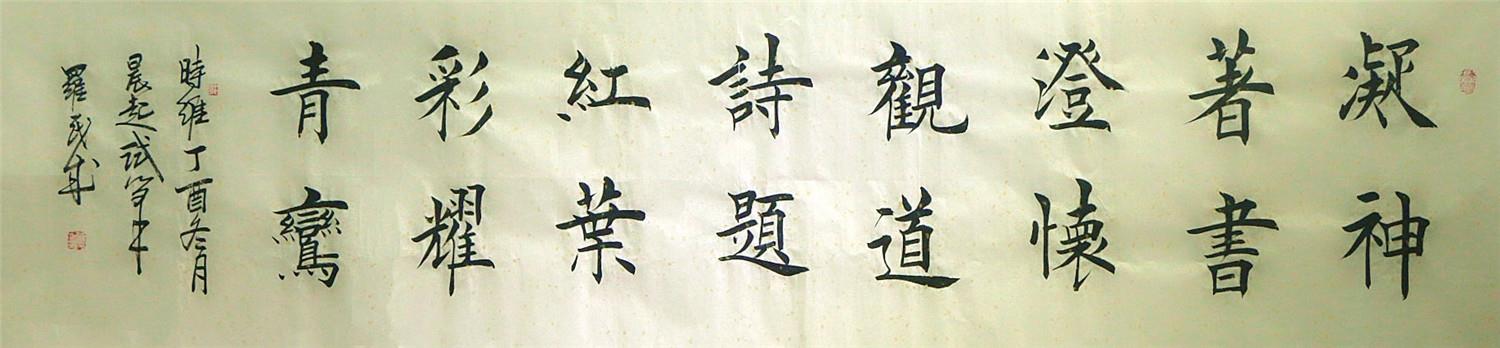 凝神
著書
澄懷
觀道
詩題
紅葉
彩耀
青鸞
時維丁酉冬月
晨起試筆
羅民